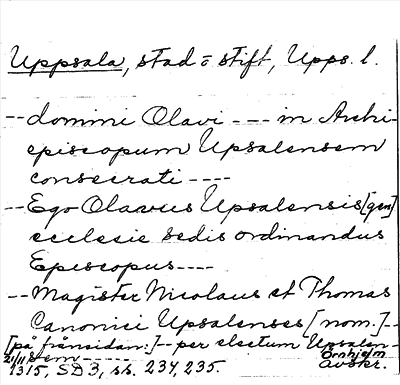 Uppsala, stad o stift, Upps. l.
-- domini Olavi --- in Archi-
episcopum Upsalensem
consecrati ----
-- Ego Olavus Upsalensis [gen]
ecclesie sedis ordinandus
Episcopus ----
-- Magister Nicolaus et Thomas
Canonici Upsalenses [nom.] --
[på frånsidan:] -- per electum Upsalen-
sem ----
21/11 1315, SD 3, ss. 234, 235. Örnhjelm avskr.